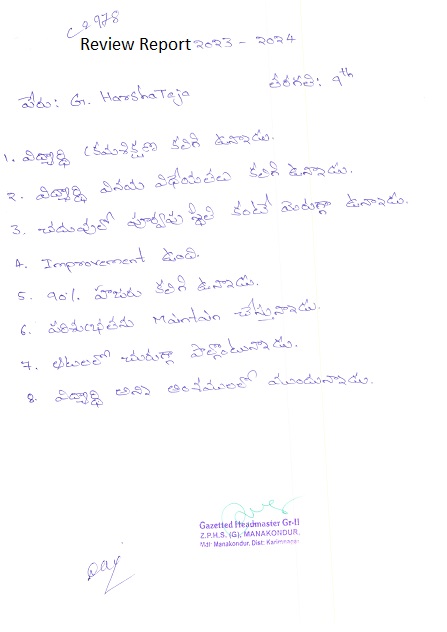 C 978
Review Report 2023 - 2024
పేరు: G. HarshaTeja
తరగతి: 9th
1. విద్యార్థి క్రమశిక్షణ కలిగి ఉన్నాడు.
2. విద్యార్థి వినయ విధేయతలు కలిగి ఉన్నాడు.
3. చదువులో పూర్వపు స్థితి కంటే మెరుగ్గా ఉన్నాడు.
4. Improvement ఉంది.
5. 90% హాజరు కలిగి ఉన్నాడు.
6. పరిశుభ్రతను Maintain చేస్తున్నాడు.
7. ఆటలలో చురుగ్గా పాల్గొంటున్నాడు.
8. విద్యార్థి అన్ని అంశములలో ముందున్నాడు.
Gazetted Headmaster Gr-II
Z.P.H.S. (G), MANAKONDUR,
Mdl: Manakondur, Dist: Karimnagar